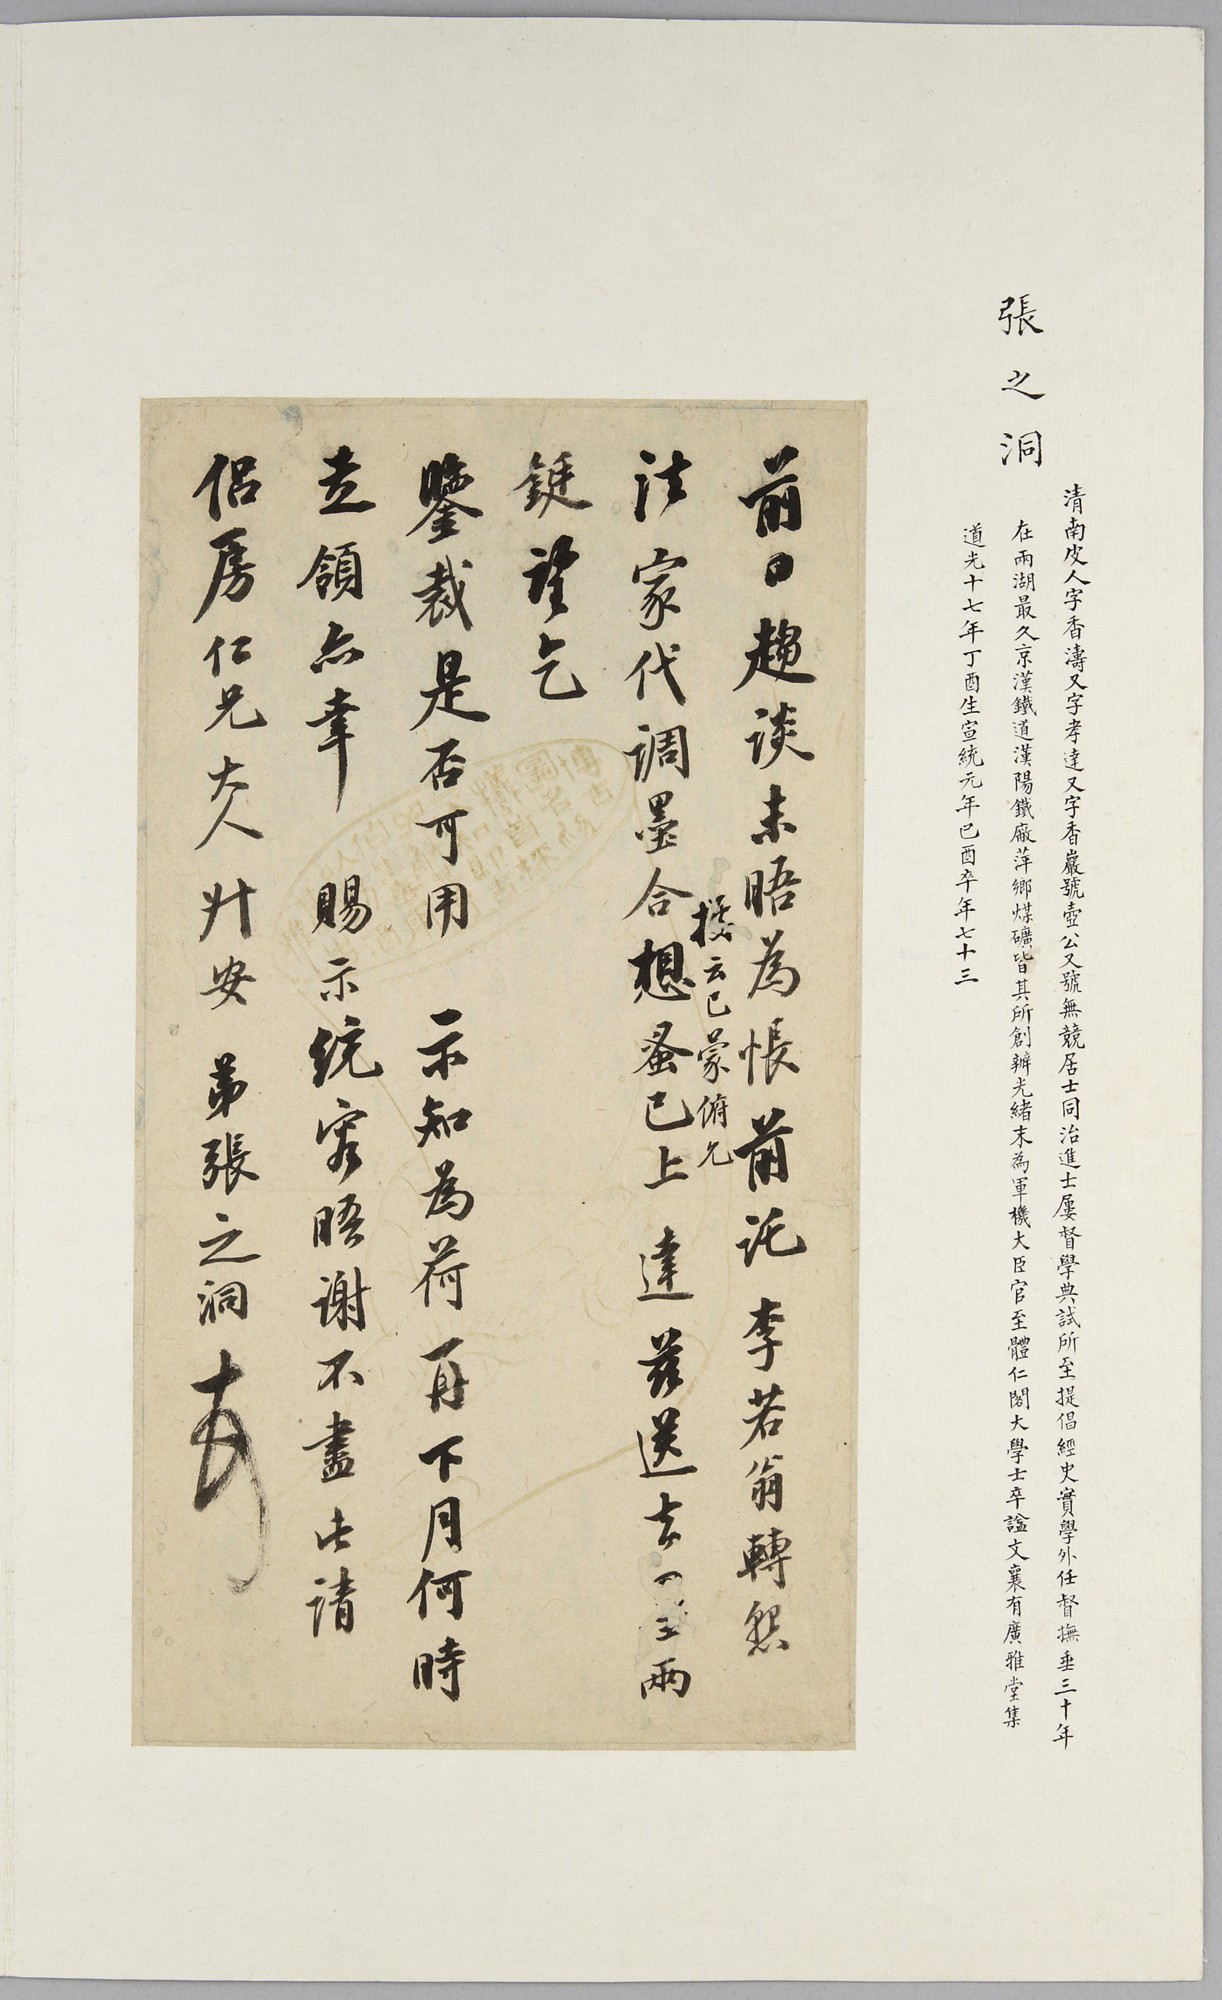 張之洞
清南皮人字香濤又字孝達又字香巖號壺公又號無競居士同治進士屢督學典試所至提倡經史實學外任督撫垂三十年
在兩湖最久京漢鐵道漢陽鐵廠萍鄉煤礦皆其所創辦光緒末為軍機大臣官至體仁閣大學士卒謚文襄有廣雅堂集
道光十七年丁酉生宣統元年己酉卒年七十三
前日趨談未晤為悵前託李若翁轉懇
據云已蒙俯允
法家代調墨合想蚤已上達茲送去墨兩
鋌望乞
鑒裁是否可用示知為荷再下月何時
走領亦幸賜示統容晤謝不盡此請
侶房仁兄大人升安弟張之洞